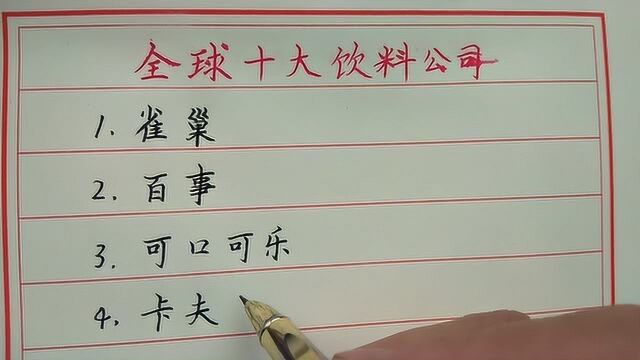 全球十大饮料公司
1. 雀巢
2. 百事
3. 可口可乐
4. 卡夫